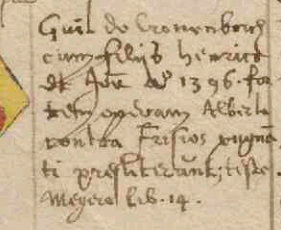 Guil de Cronenborch
cum filijs henrico
et Joē aº 1396. for
tem operam Alberto
contra Frisios pugnā
ti prestiterūnt, teste
Meyero lib. 14.